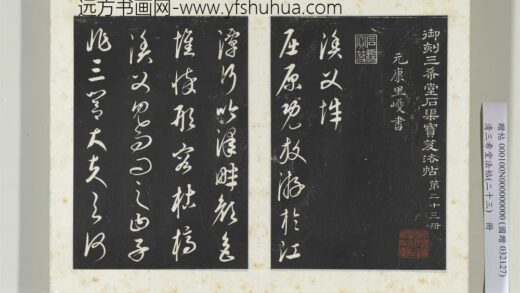 远方书画网-www.yfshuhua.com
御刻三希堂石渠寶笈法帖 第二十三冊
元康里巎書
漁父辭
屈原既放游於江
潭行吟澤畔顏色
憔悴形容枯槁
漁父見而問之曰子
非三閭大夫與何
贈帖 000100N000000000 (國贈 032127)
清三希堂法帖(二十三) 冊